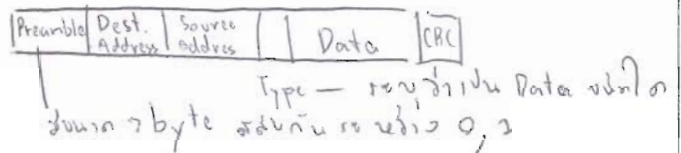 Preamble Dest. Address Source Address Data CRC
Type — ระบุว่าเป็น Data ชนิดใด
มีขนาด 7 byte สลับกันระหว่าง 0, 1